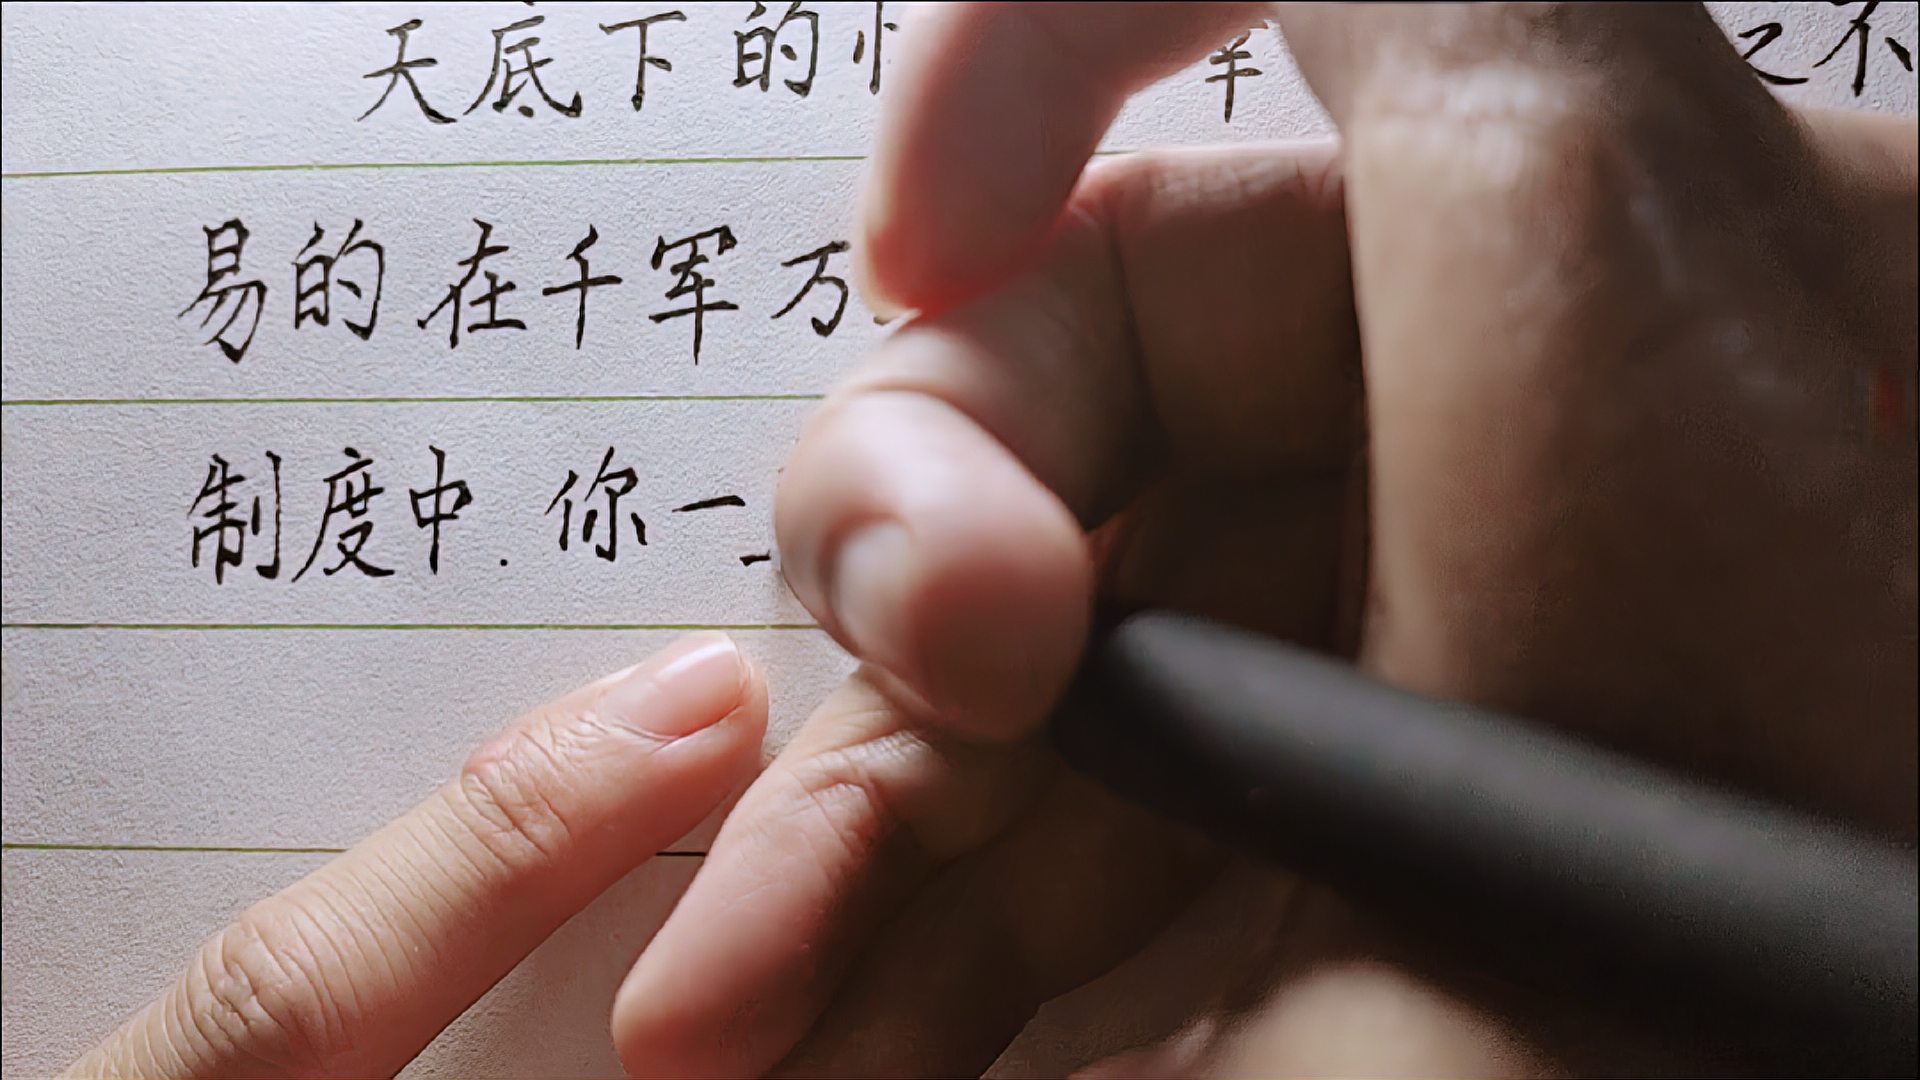 天底下的 之不
易的在千军万
制度中.你一